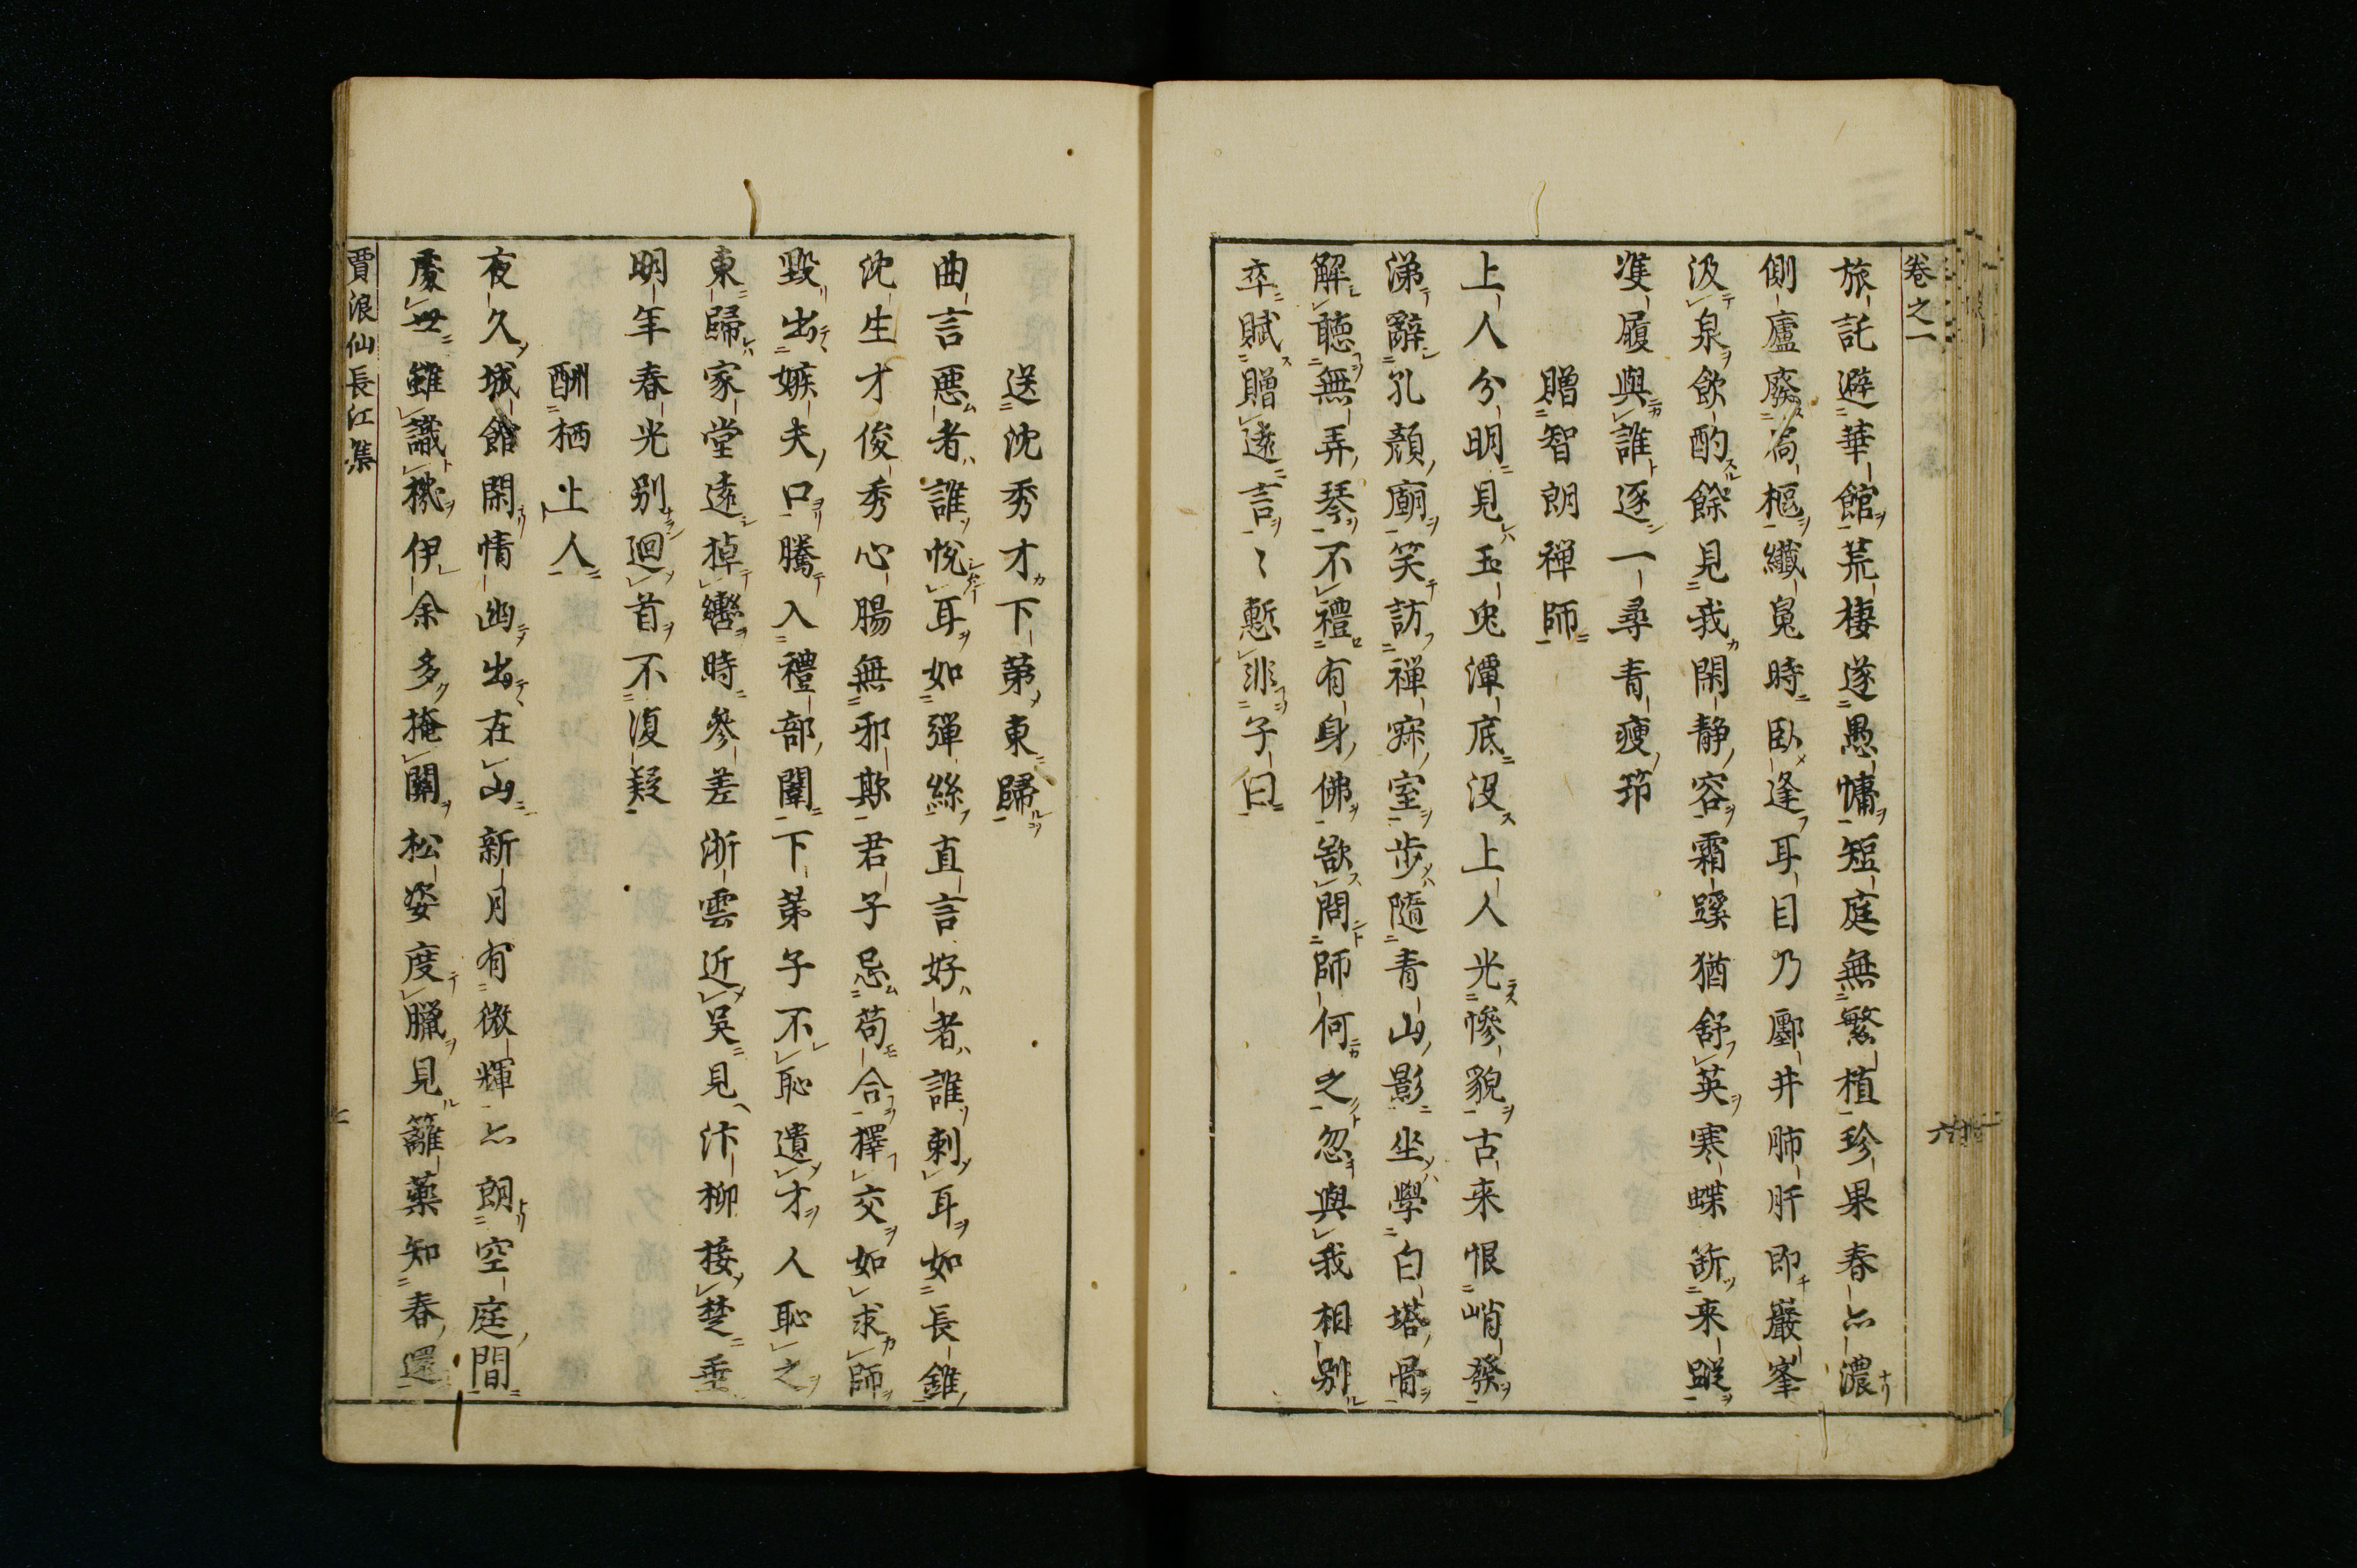 卷之一
旅託避華館荒棲遂愚慵短庭無繁植珍果春亦濃
側廬廢扃樞纖鳧時臥逢耳目乃鄽井肺肝即巖峯
汲泉飲酌餘見我閑静容霜蹊猶舒英寒蝶斷来蹤
雙履與誰逐一尋青瘦筇
贈智朗禅師
上人分明見玉兔潭底没上人光慘貌古来恨峭發
涕辭孔顏廟笑訪禅寂室步隨青山影坐學白塔骨
解聽無弄琴不禮有身佛欲問師何之忽與我相别
卒賦贈遠言言慙非子曰
六
送沈秀才下第東歸
曲言惡者誰悅耳如彈絲直言好者誰刺耳如長錐
沈生才俊秀心腸無邪欺君子忌苟合擇交如求師
毀出嫉夫口騰入禮部闈下第子不恥遺才人恥之
東歸家堂遠掉轡時參差浙雲近吳見汴柳接楚垂
明年春光别迴首不復疑
酬栖上人
夜久城館閑情幽出在山新月有微輝亦朗空庭間
處世雖識機伊余多掩關松姿度臘見籬藥知春還
賈浪仙長江集
七